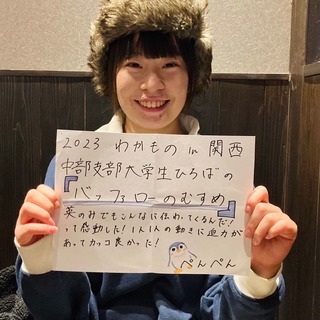 2023 わかもの in 関西
中部支部大学生ひろばの
『バッファローのむすめ』
英のみでもこんなに伝わってくるんだ!
って感動した!1人1人の動きに迫力が
あってカッコ良かった!
ぺんぺん